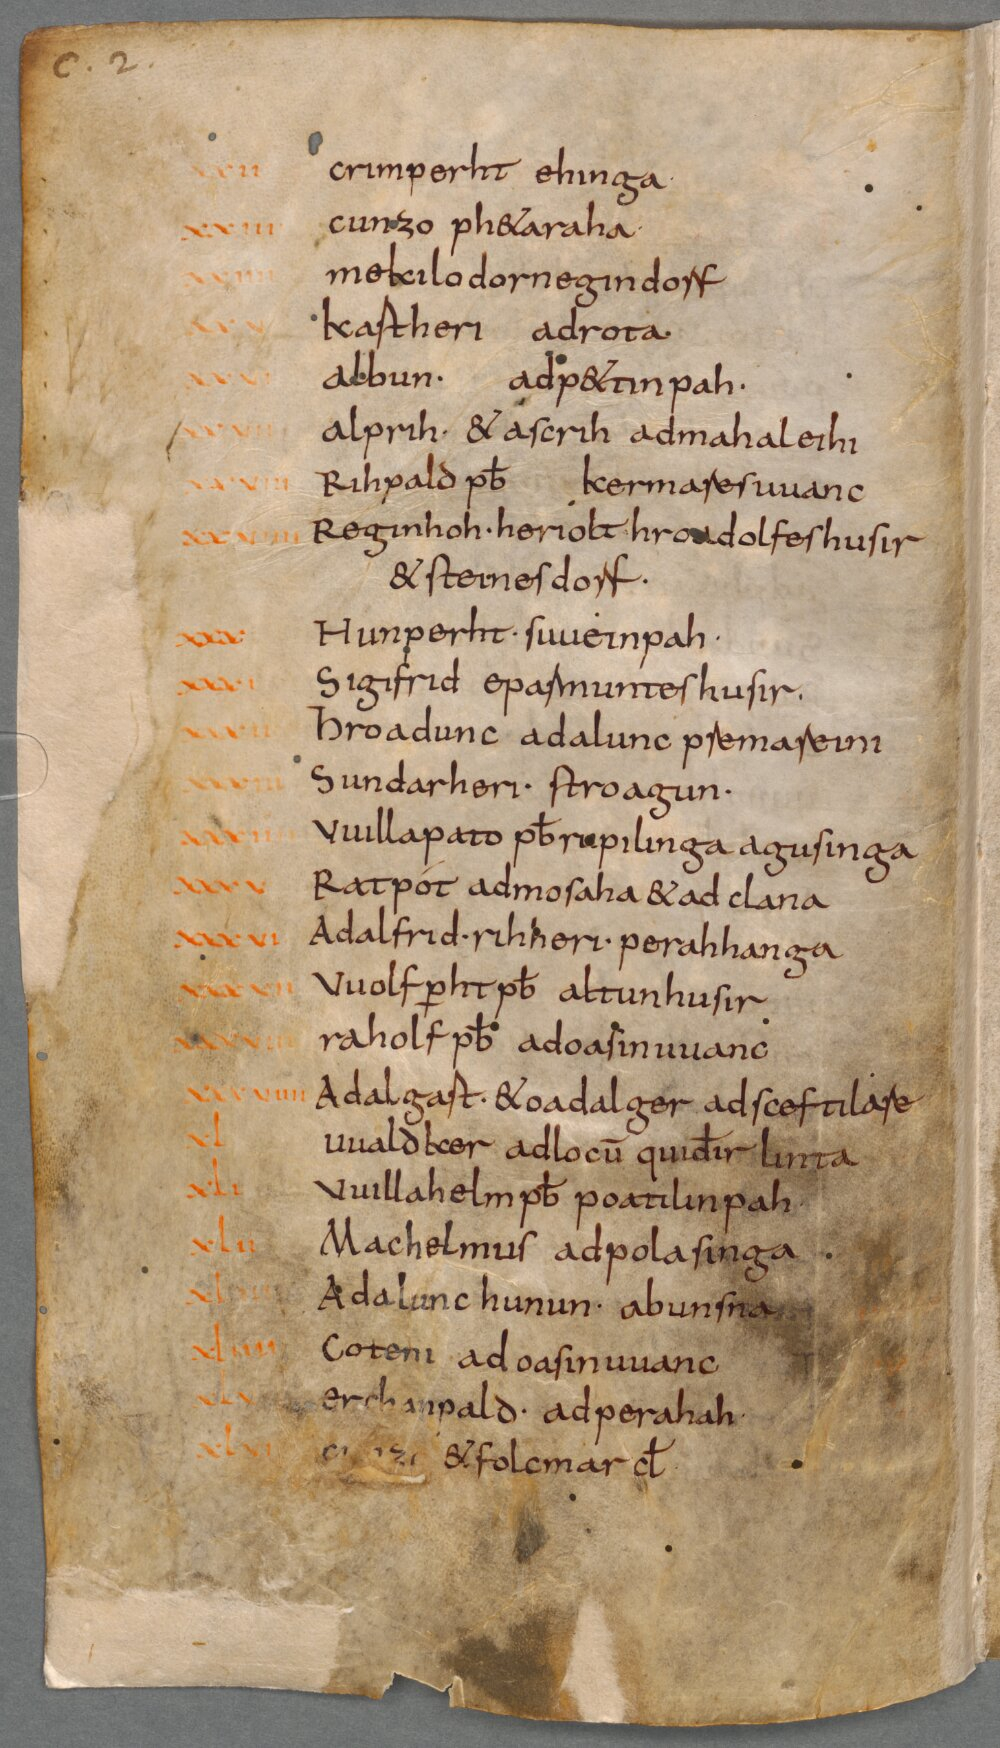 C. 2.
xxii crimperht ehinga
xxiii cunzo ph&araha
xxiiii mekilo dornegindorf
xxv kastheri adrota
xxvi albun. adp&tinpah.
xxvii alprih. & ascrih admahaleihi
xxviii Rihpald pƀ kermaresuuanc
xxviiii Reginhoh. heriolt hroadolfeshusir
& steinesdorf.
xxx Hunperht. suueinpah.
xxxi Sigifrid epasmunteshusir.
xxxii hroadunc adalunc premareini
xxxiii Sundarheri. stroagun.
xxxiiii Vuillapato pƀ rupilinga agusinga
xxxv Ratpót admosaha & ad clana
xxxvi Adalfrid. rihheri. perahhanga
xxxvii Vuolfꝑht pƀ altunhusir
xxxviii raholf pƀ adoasinuuanc
xxxviiii Adalgast. & oadalger adsceftilare
xl uualdker adlocū quiđir linta
xli Vuillahelm pƀ poatilinpah
xlii Machelmus adpolasinga
xliii Adalunc hunun. abunsna
xliiii Coteni adoasinuuanc
xlv erchanpald. adperahah
xlvi & folcmar cł